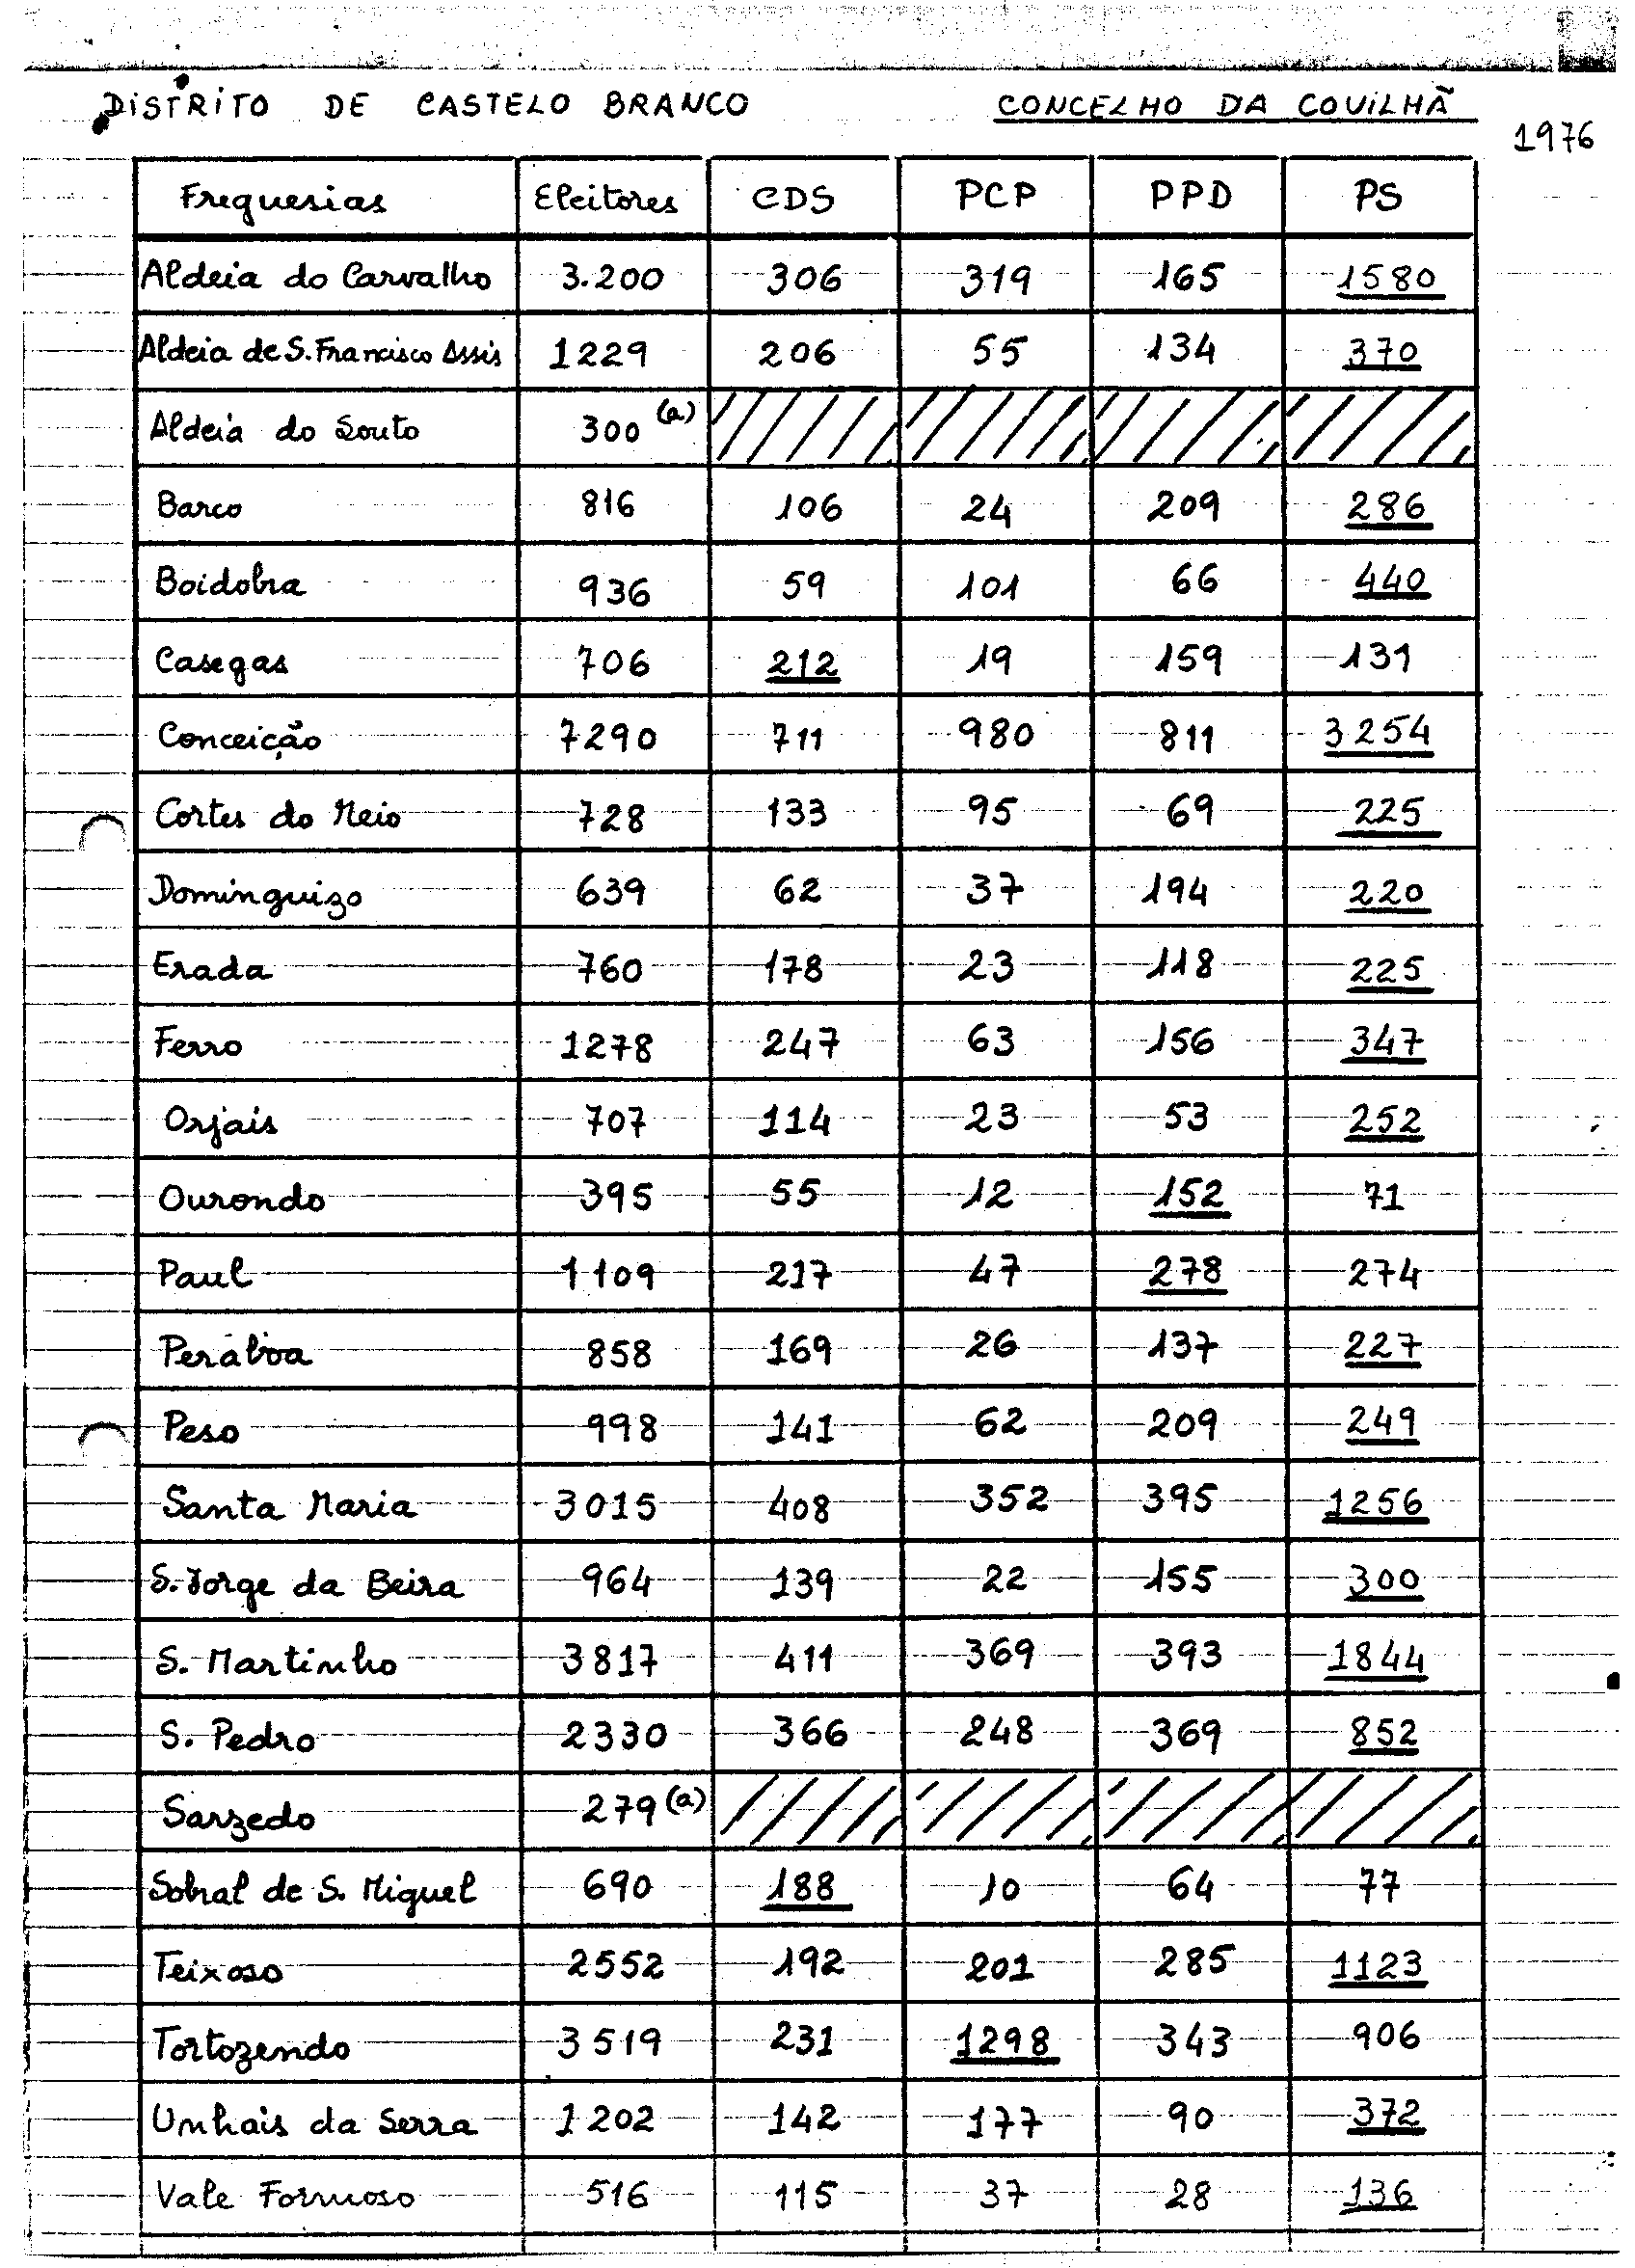 DISTRITO DE CASTELO BRANCO CONCELHO DA COVILHÃ
1976
Freguesias Eleitores CDS PCP PPD PS
Aldeia do Carvalho 3.200 306 319 165 1580
Aldeia de S. Francisco Assis 1229 206 55 134 370
Aldeia do Souto 300 (a)
Barco 816 106 24 209 286
Boidobra 936 59 101 66 440
Casegas 706 212 19 159 131
Conceição 7290 711 980 811 3254
Cortes do Meio 728 133 95 69 225
Dominguizo 639 62 37 194 220
Erada 760 178 23 118 225
Ferro 1278 247 63 156 347
Orjais 707 114 23 53 252
Ourondo 395 55 12 152 71
Paul 1109 217 47 278 274
Peraboa 858 169 26 137 227
Peso 998 141 62 209 249
Santa Maria 3015 408 352 395 1256
S. Jorge da Beira 964 139 22 155 300
S. Martinho 3817 411 369 393 1844
S. Pedro 2330 366 248 369 852
Sarzedo 279 (a)
Sobral de S. Miguel 690 188 10 64 77
Teixoso 2552 192 201 285 1123
Tortozendo 3519 231 1298 343 906
Unhais da Serra 1202 142 177 90 372
Vale Formoso 516 115 37 28 136